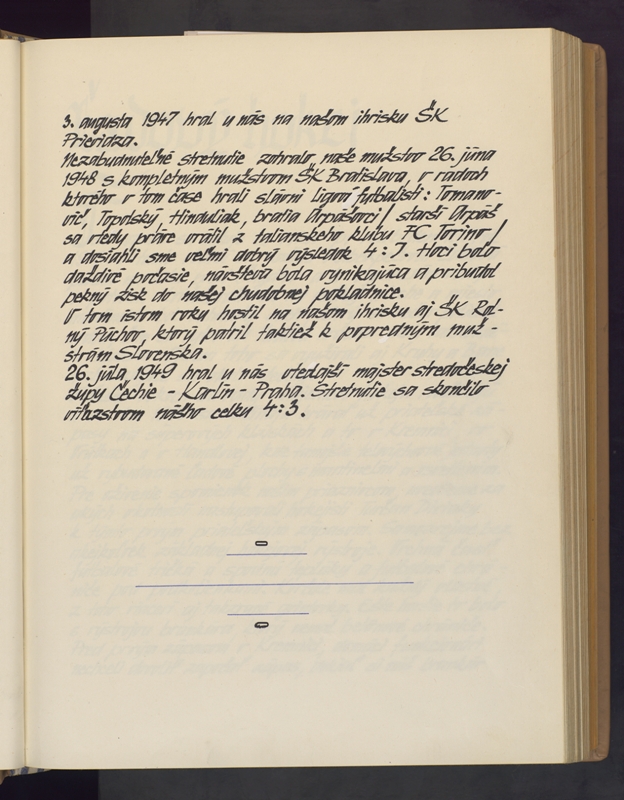 3. augusta 1947 hral u nás na našom ihrisku ŠK
Prievidza.
Nezabudnuteľné stretnutie zohralo naše mužstvo 26. júna
1948 s kompletným mužstvom ŠK Bratislava, v radoch
ktorého v tom čase hrali slávni ligoví futbalisti: Tomano-
vič, Topolský, Hinduliak, bratia Arpášovci / starší Arpáš
sa vtedy práve vrátil z talianskeho klubu FC Torino /
a dosiahli sme veľmi dobrý výsledok 4:7. Hoci bolo
daždivé počasie, návšteva bola vynikajúca a pribudol
pekný zisk do našej chudobnej pokladnice.
V tom istom roku hostil na našom ihrisku aj ŠK Rol-
ný Púchov, ktorý patril taktiež k popredným muž-
strám Slovenska.
26. júla 1949 hral u nás vtedajší majster stredočeskej
župy Čechie - Karlín - Praha. Stretnutie sa skončilo
víťazstvom nášho celku 4:3.